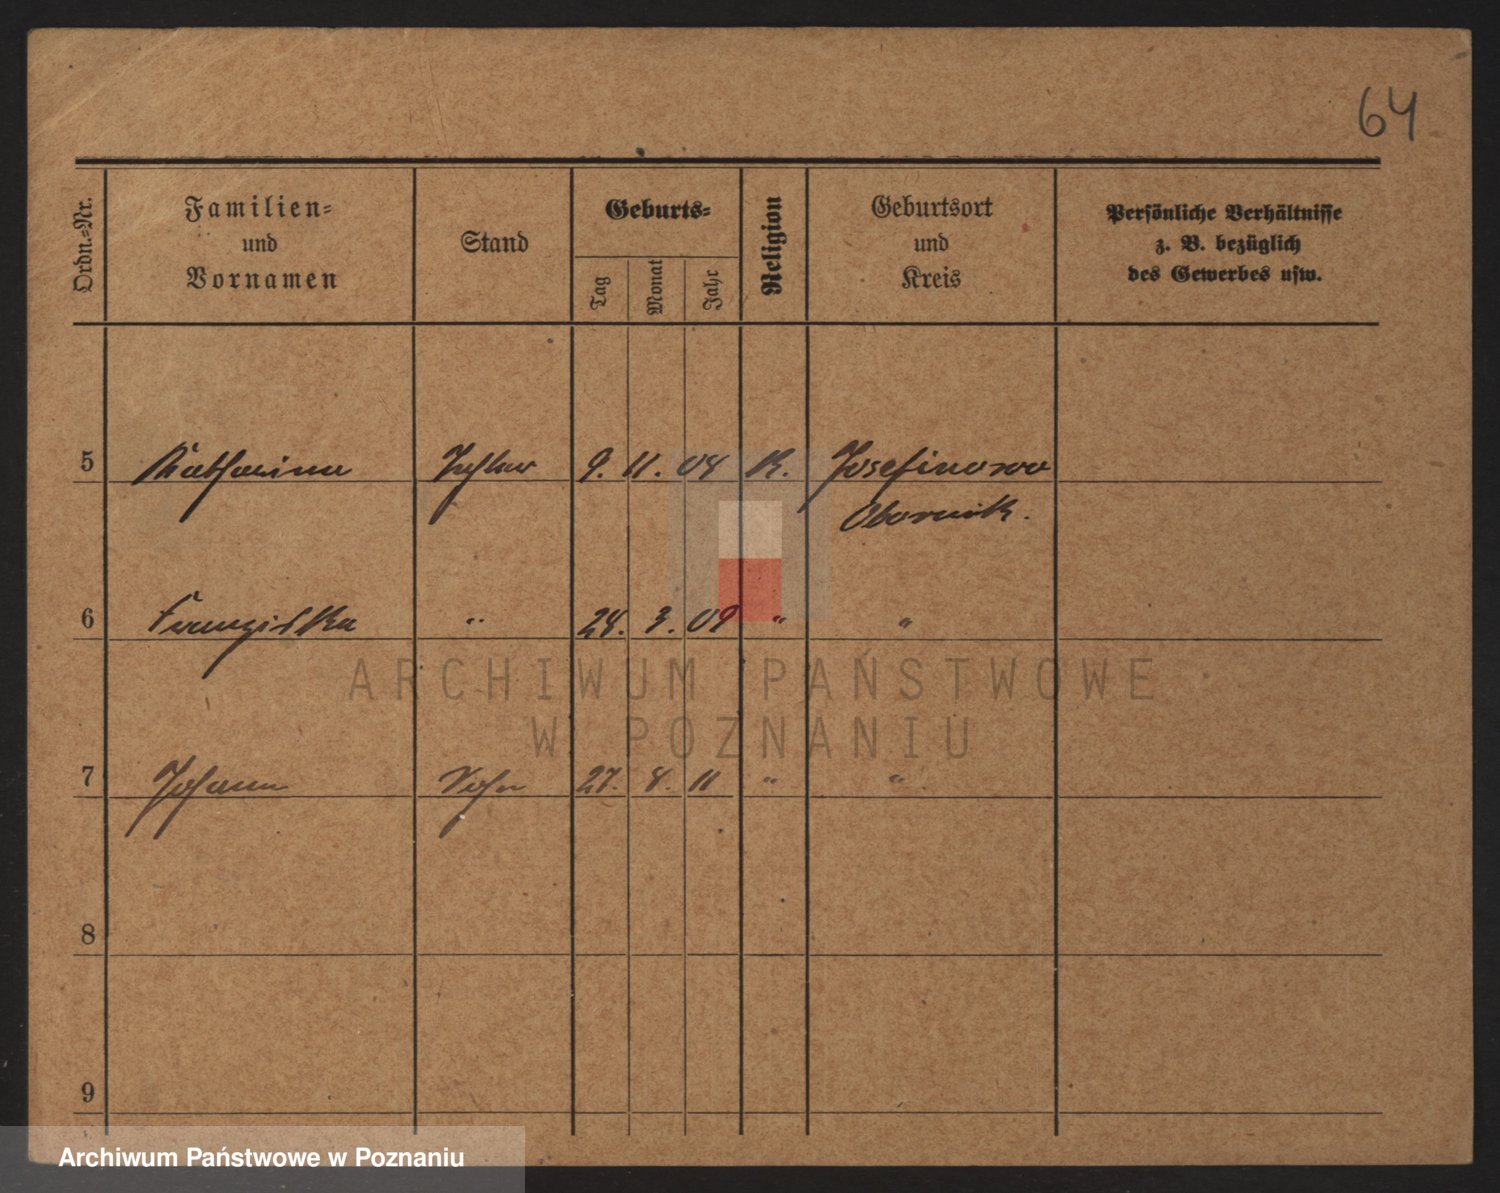 64
Ordn.-Nr.
Familien-
und
Vornamen
Stand
Geburts-
Tag
Monat
Jahr
Religion
Geburtsort
und
Kreis
Persönliche Verhältnisse
z. B. bezüglich
des Gewerbes usw.
5 Katharina Tochter 9. 11. 04 K. Josefinowo
Obornik.
6 Franziska " 28. 3. 09 " "
ARCHIWUM PAŃSTWOWE
W POZNANIU
7 Johann Sohn 27. 8. 11 " "
8
9
Archiwum Państwowe w Poznaniu